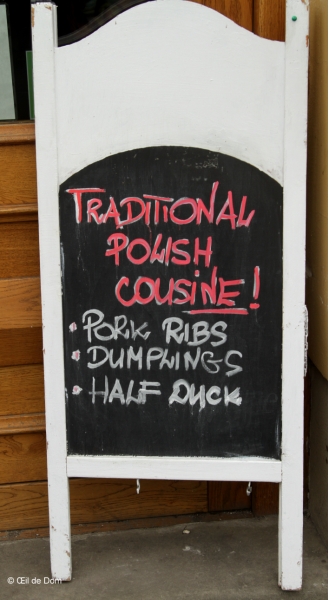 TRADITIONAL
POLISH
COUSINE!
• PORK RIBS
• DUMPLINGS
• HALF DUCK
© Œil de Dom